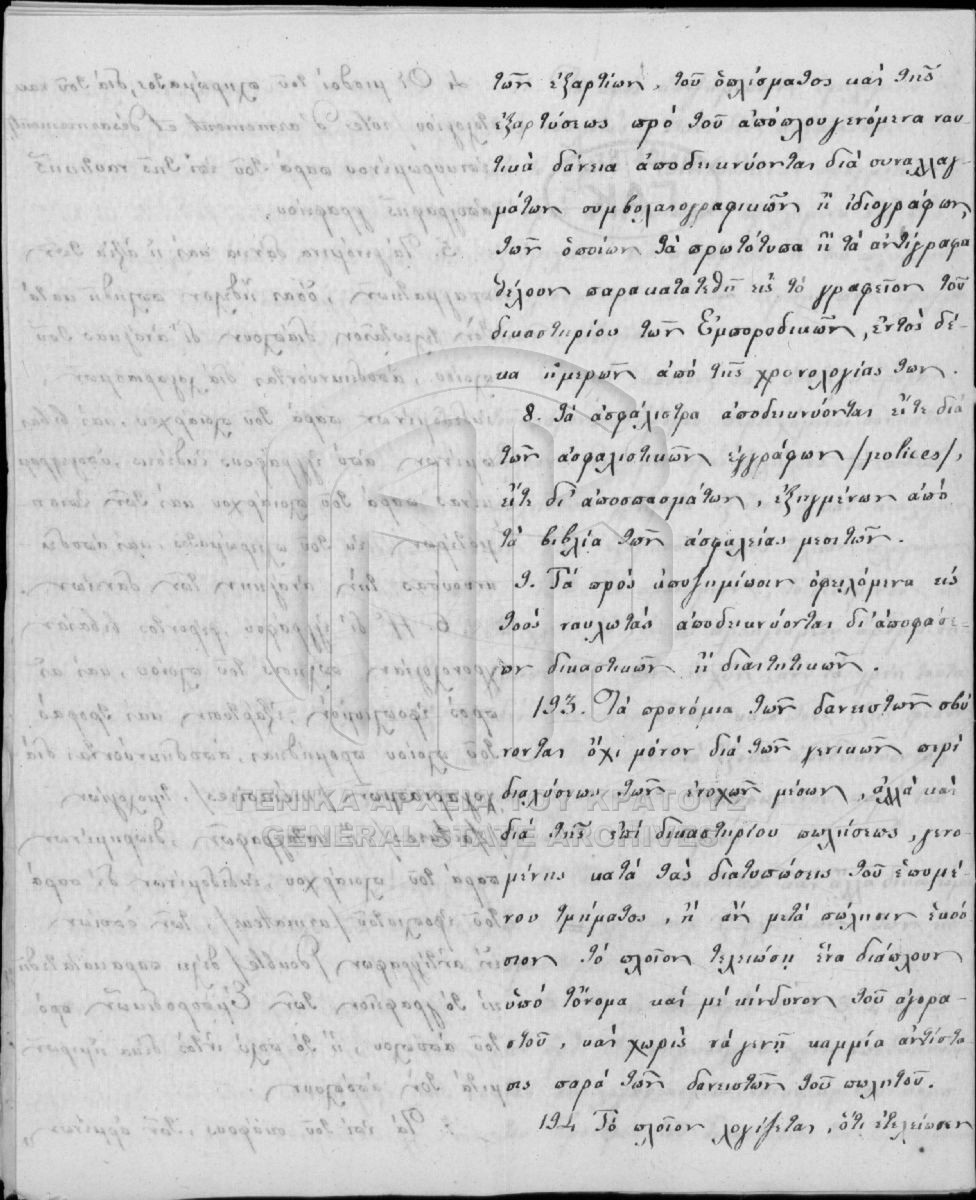 τῶν ἐξαρτίων, τοῦ ὁπλίσματος καὶ τῆς
ἐξαρτύσεως πρὸ τοῦ ἀπόπλου γενόμενα ναυ-
τικὰ δάνεια ἀποδεικνύονται διὰ συναλλαγ-
μάτων συμβολαιογραφικῶν ἢ ἰδιογράφων,
τῶν ὁποίων τὰ πρωτότυπα ἢ τὰ ἀντίγραφα
θέλουν παρακατατεθῆ εἰς τὸ γραφεῖον τοῦ
δικαστηρίου τῶν Ἐμποροδικῶν, ἐντὸς δέ-
κα ἡμερῶν ἀπὸ τῆς χρονολογίας των.
8. τὰ ἀσφάλιστρα ἀποδεικνύονται εἴτε διὰ
τῶν ἀσφαλιστικῶν ἐγγράφων /polices/,
εἴτε δι' ἀποσπασμάτων, ἐξηγμένων ἀπὸ
τὰ βιβλία τῶν ἀσφαλείας μεσιτῶν.
9. Τὰ πρὸς ἀποζημίωσιν ὀφειλόμενα εἰς
τοὺς ναυλωτὰς ἀποδεικνύονται δι' ἀποφάσε-
ων δικαστικῶν ἢ διαιτητικῶν.
193. Τὰ προνόμια τῶν δανειστῶν σβύ
νονται ὄχι μόνον διὰ τῶν γενικῶν περὶ
διαλύσεως τῶν ἐνοχῶν μέσων, ἀλλὰ καὶ
διὰ τῆς ἐπὶ δικαστηρίου πωλήσεως, γενο-
μένης κατὰ τὰς διατυπώσεις τοῦ ἑπομέ-
νου τμήματος, ἢ ἂν μετὰ πώλησιν ἑκού
σιον τὸ πλοῖον τελειώσῃ ἕνα διάπλουν
ὑπὸ τὄνομα καὶ μὲ κίνδυνον τοῦ ἀγορα-
στοῦ, καὶ χωρὶς νὰ γενῇ καμμία ἀντίστα
σις παρὰ τῶν δανειστῶν τοῦ πωλητοῦ.
194 Τὸ πλοῖον λογίζεται, ὅτι ἐτελείωσεν
ΓΕΝΙΚΑ ΑΡΧΕΙΑ ΤΟΥ ΚΡΑΤΟΥΣ
GENERAL STATE ARCHIVES